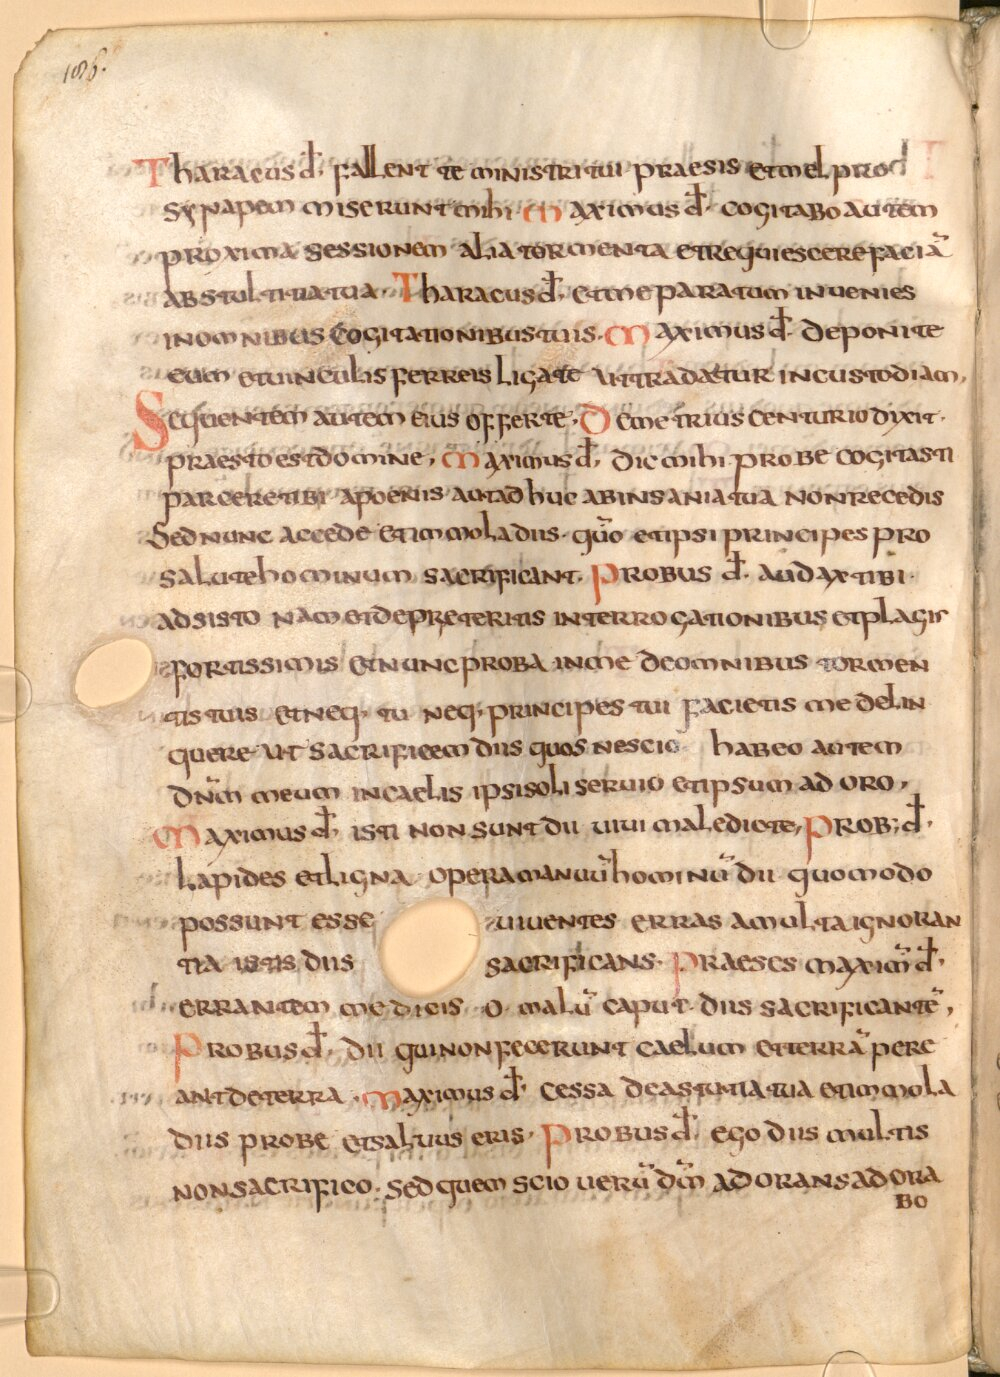 186.
Tharacus d̄. fallent te ministri tui praesis et mel pro d
synapem miserunt mihi. Maximus d̄. cogitabo autem
proxima sessionem alia tormenta et requiescere faciā
abstultitia tua. Tharacus d̄. et me paratum inuenies
in omnibus cogitationibus tuis. Maximus d̄. deponite
eum et uinculis ferreis ligate ut tradatur in custodiam,
Sequentem autem eius offerte, Demetrius centurio dixit.
praesto est domine, Maximus d̄, dic mihi probe cogitasti
parcere tibi apoenis aut adhuc ab insania tua non recedis
Sed nunc accede et immola diis. qūo et ipsi principes pro
salute hominum sacrificant. Probus d̄. audax tibi.
adsisto nam et de preteritis interrogationibus et plagis
fortissimis et nunc proba in me de omnibus tormen
tis tuis et neq, tu neq, principes tui facietis me delin
quere ut sacrificem diis quos nescio habeo autem
dn̄m meum in caelis ipsi soli seruio et ipsum adoro,
Maximus d̄. isti non sunt dii uiui maledicte, Prob; d̄.
Lapides et ligna opera manuū hominū dii quomodo
possunt esse uiuentes erras a multa ignoran
tia istis diis sacrificans. Praeses maxim̄ d̄.
errantem me dicis o. malū caput. diis sacrificantē,
Probus d̄. dii qui non fecerunt caelum et terrā pere
ant de terra. Maximus d̄ cessa de astutia tua et immola
diis probe et saluus eris. Probus d̄. ego diis multis
non sacrifico. sed quem scio uerū dm̄ adorans adora
bo